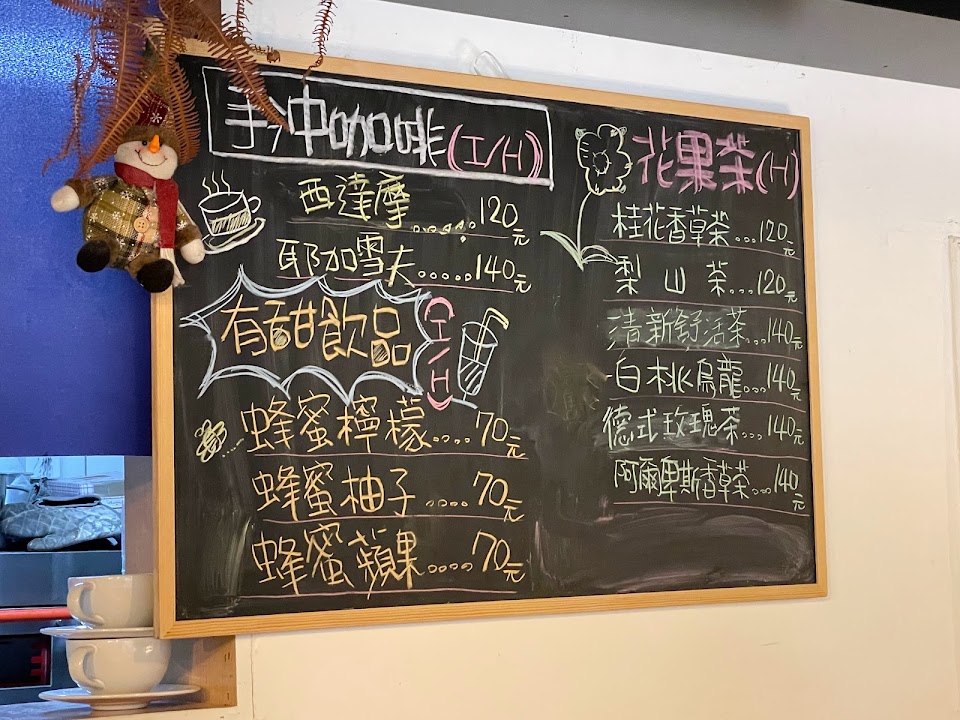 手沖咖啡(I/H)
西達摩......120元
耶加雪夫.....140元
有甜飲品(I/H)
蜂蜜檸檬....70元
蜂蜜柚子....70元
蜂蜜蘋果....70元
花果茶(H)
桂花香草茶...120元
梨山茶...120元
清新舒活茶...140元
白桃烏龍...140元
德式玫瑰茶...140元
阿爾卑斯香草茶...140元